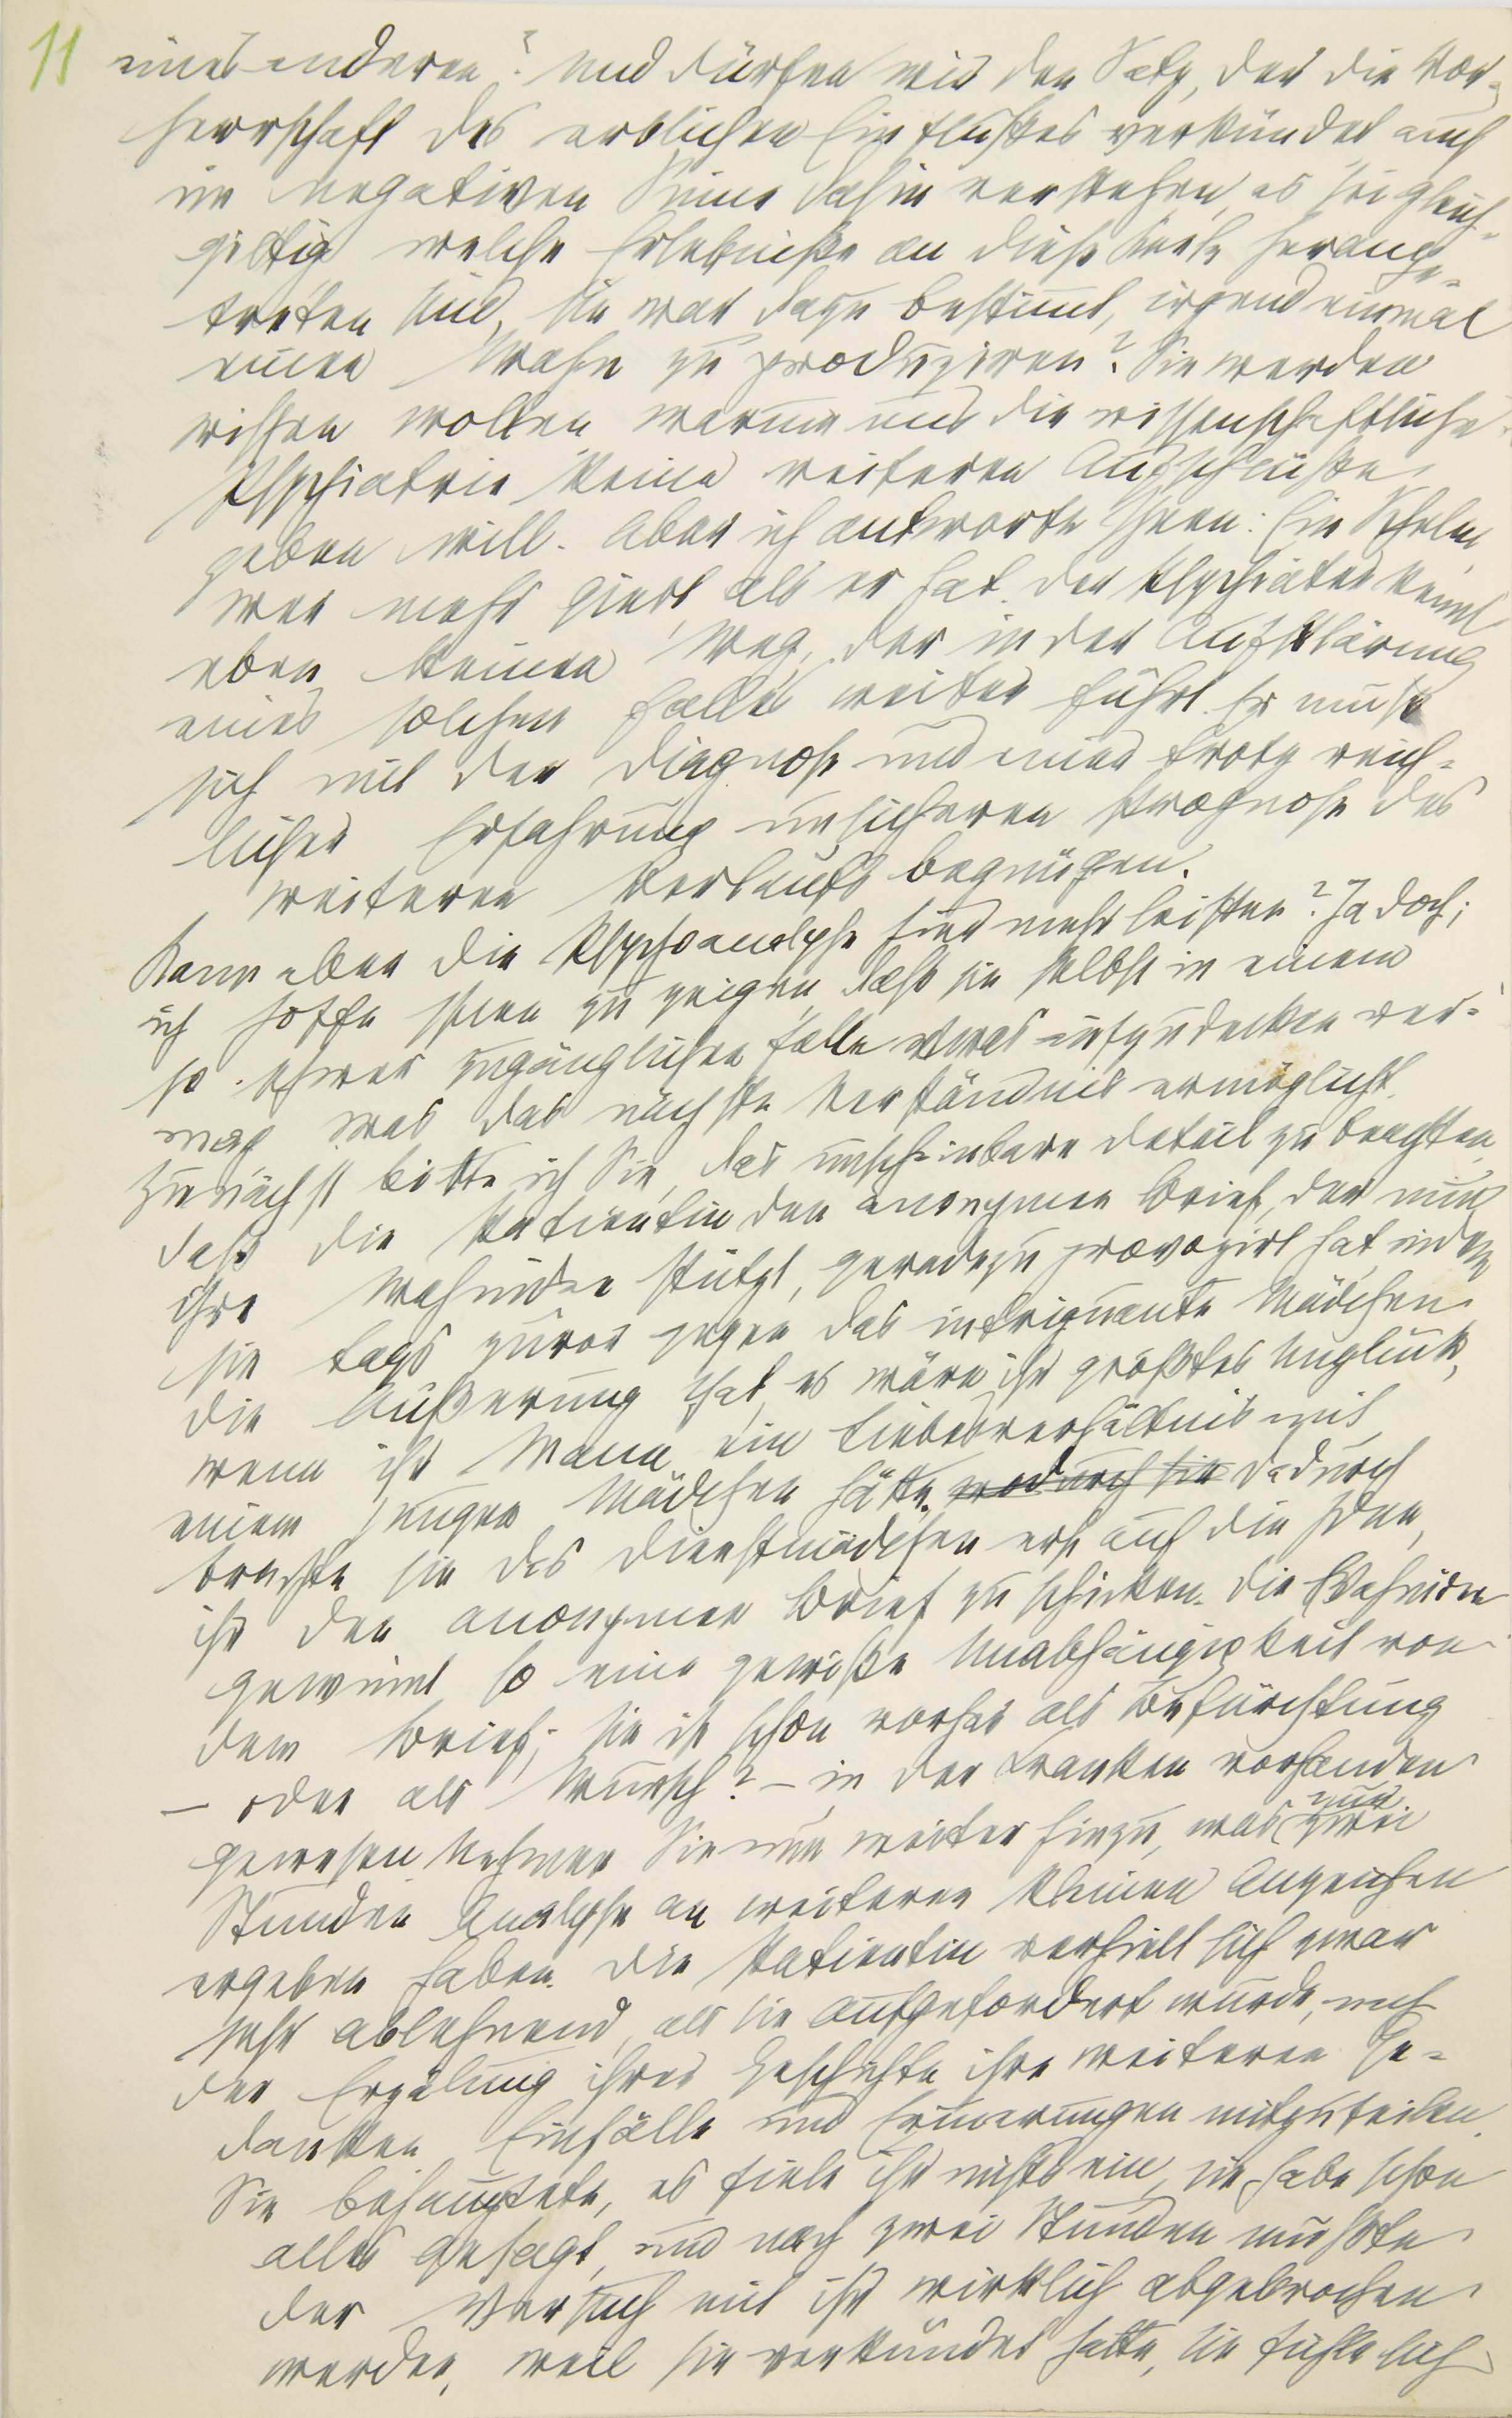 11
eines anderen? Und dürfen wir den Satz, der die Vor-
herrschaft des erblichen Einflußes verkündet auch
im negativen Sinne dahin verstehen, es sei gleich-
giltig welche Erlebniße an diese Seele herange-
treten sind, sie war dazu bestimmt, irgend einmal
einen Wahn zu produziren? Sie werden
wissen wollen warum uns die wissenschaftliche
Psychiatrie keine weiteren Aufschlüße
geben will. Aber ich antworte Ihnen: Ein Schelm
wer mehr giebt, als er hat. Der Psychiater kennt
eben keinen Weg, der in der Aufklärung
eines solchen Falles weiter führt. Er muß
sich mit der Diagnose und einer trotz reich-
licher Erfahrung unsicheren Prognose des
weiteren Verlaufs begnügen.
Kann aber die Psychoanalyse hier mehr leisten? Ja doch;
ich hoffe Ihnen zu zeigen, daß sie selbst in einem
so schwer zugänglichen Falle etwas aufzudecken ver-
mag was das nächste Verständnis ermöglicht.
Zunächst bitte ich Sie, das unscheinbare Detail zu beachten,
daß die Patientin den anonymen Brief, der nun
ihre Wahnidee stützt, geradezu provozirt hat, indem
sie tags zuvor gegen das intriguante Mädchen
die Äußerung that, es wäre ihr größtes Unglück,
wenn ihr Mann ein Liebesverhältnis mit
einem jungen Mädchen hätte. wodurch sie Dadurch
brachte sie das Dienstmädchen erst auf die Idee,
ihr den anonymen Brief zu schicken. Die Wahnidee
gewinnt so eine gewiße Unabhängigkeit von
dem Brief; sie ist schon vorher als Befürchtung
– oder als Wunsch? – in der Kranken vorhanden
gewesen. Nehmen Sie nun weiter hinzu, was nur zwei
Stunden Analyse an weiteren kleinen Anzeichen
ergeben haben. Die Patientin verhielt sich zwar
sehr ablehnend, als sie aufgefordert wurde, nach
der Erzälung ihrer Geschichte ihre weiteren Ge-
danken, Einfälle und Erinnerungen mitzuteilen.
Sie behauptete, es fiele ihr nichts ein, sie habe schon
alles gesagt, und nach zwei Stunden mußte
der Versuch mit ihr wirklich abgebrochen
werden, weil sie verkündet hatte, sie fühle sich